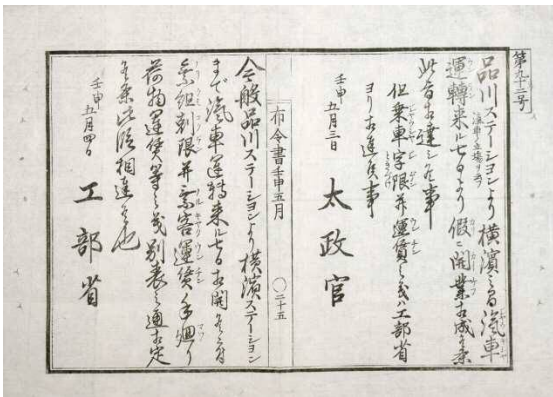 第九十三号
品川ステーションより横濱迄汽車
運轉来ル七日より假ニ開業相成候条
此旨相達シ候事
但乗車字限并運賃之義ハ工部省
ヨリ相達候事
壬申五月三日
太政官
布令書壬申五月
〇二十五
今般品川ステーションより横濱ステーション
まて汽車運轉来ル七日相開候ニ付
乗組刻限并乗客運賃手廻り
荷物運賃等之義別表之通相定
候条此段相達候也
壬申五月四日
工部省